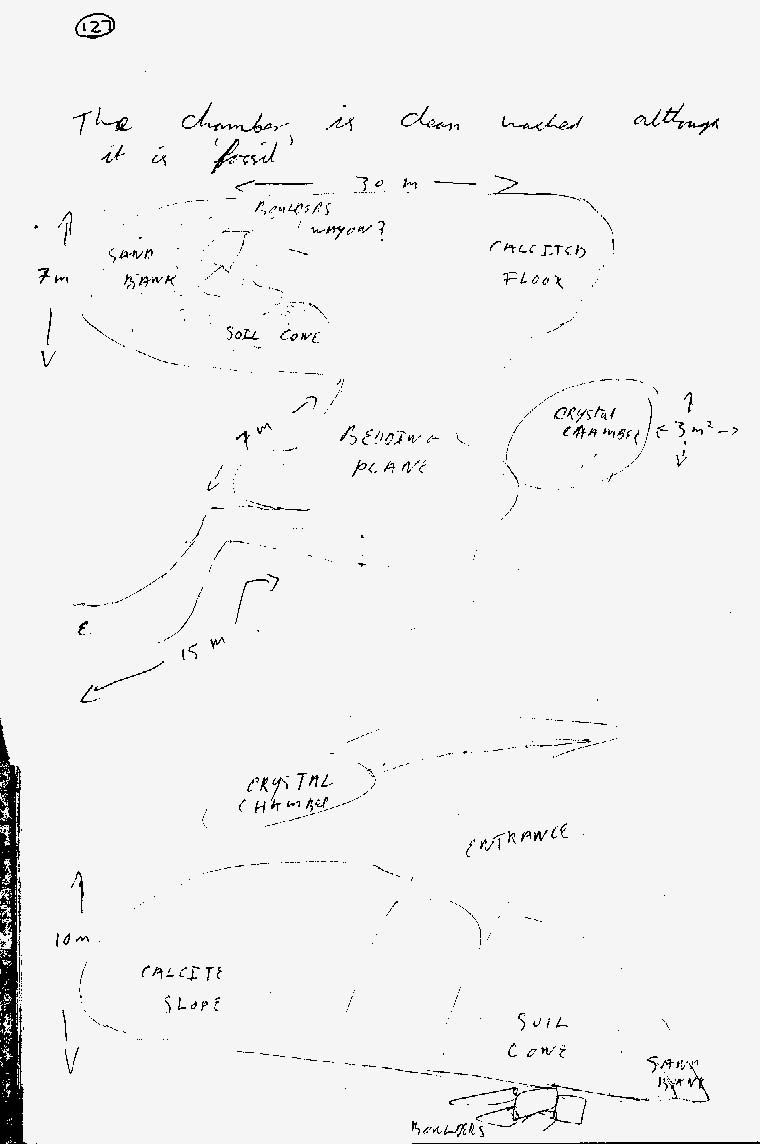 127
The chamber is clean washed although
it is 'fossil'
30 m
BOULDERS
WAYON?
7 m
SAND
BANK
CALCITED
FLOOR
SOIL CONE
7 m
BEDDING
PLANE
CRYSTAL
CHAMBER
3 m²
E
15 m
CRYSTAL
CHAMBER
ENTRANCE
10 m
CALCITE
SLOPE
SOIL
CONE
SAND
BANK
BOULDERS